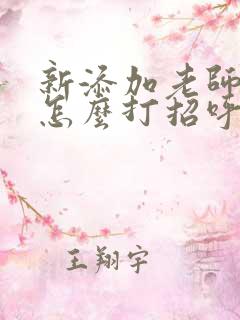 新添加老師
怎麼打招呼
王翔宇